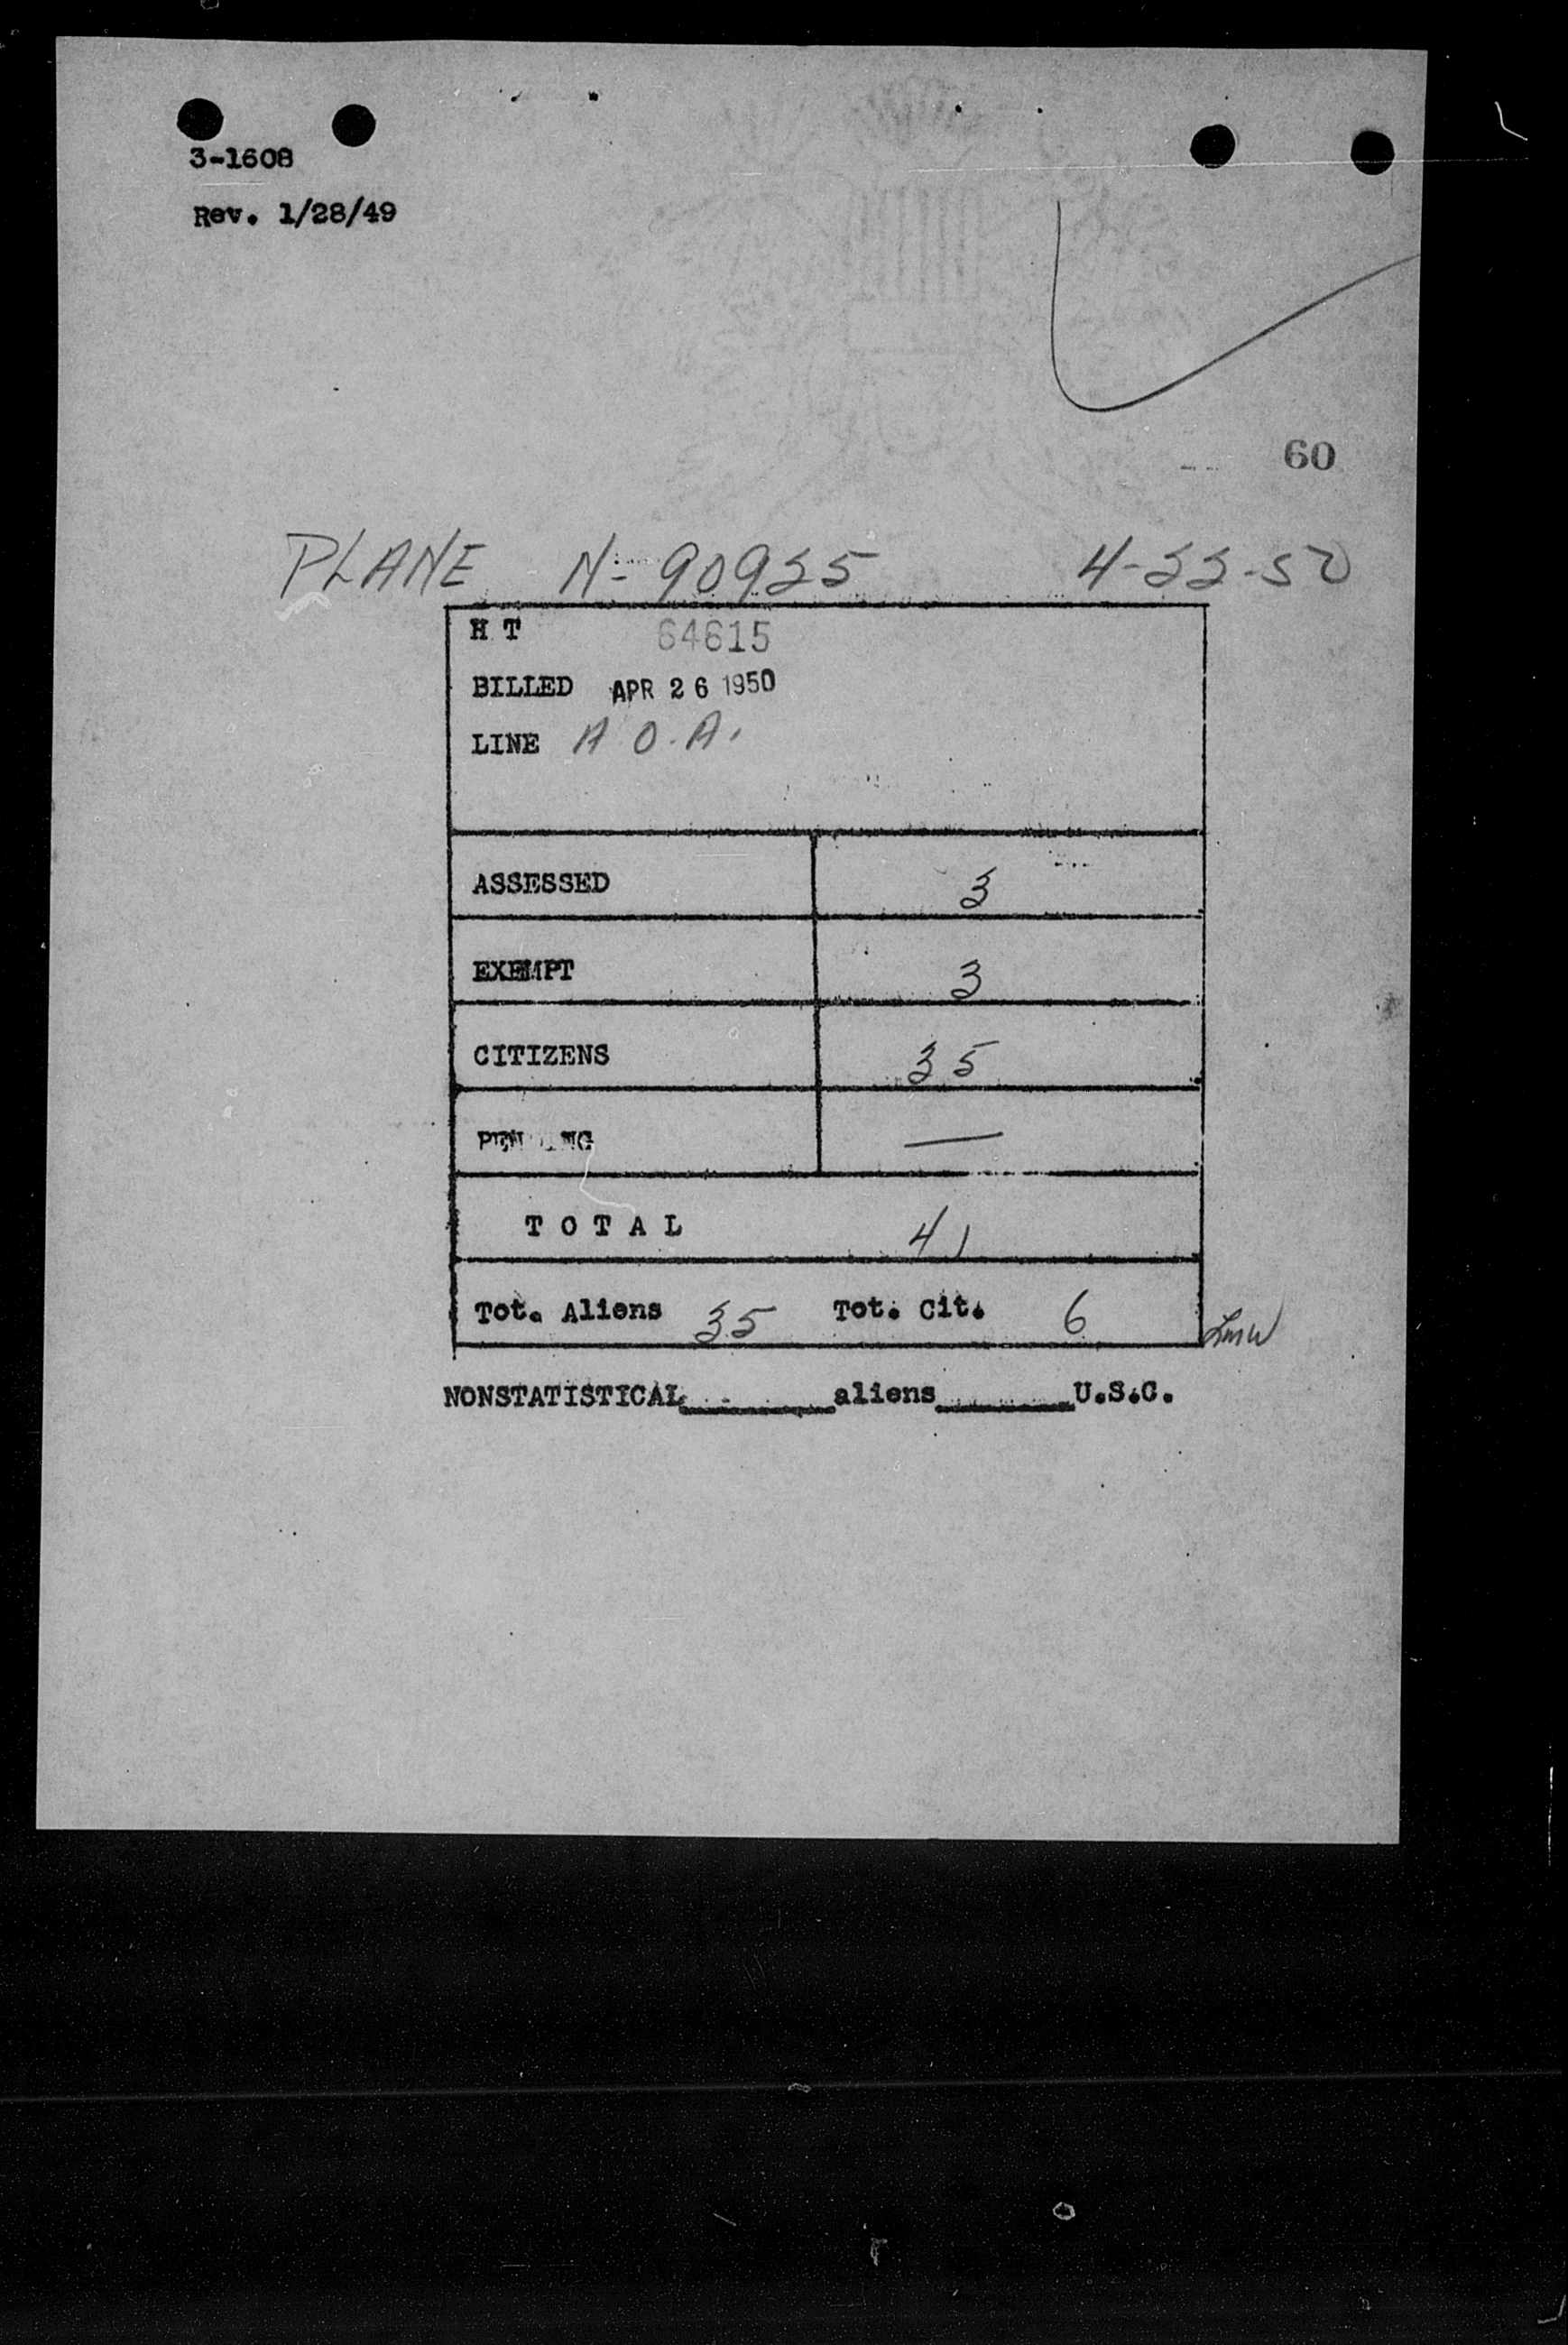 3-1608
Rev. 1/28/49
60
PLANE N-90925 4-22-50
H T 64615
BILLED APR 26 1950
LINE A O.A.
ASSESSED 3
EXEMPT 3
CITIZENS 35
PENDING —
TOTAL 41
Tot. Aliens 35 Tot. Cit. 6 LMW
NONSTATISTICAL________aliens________U.S.C.